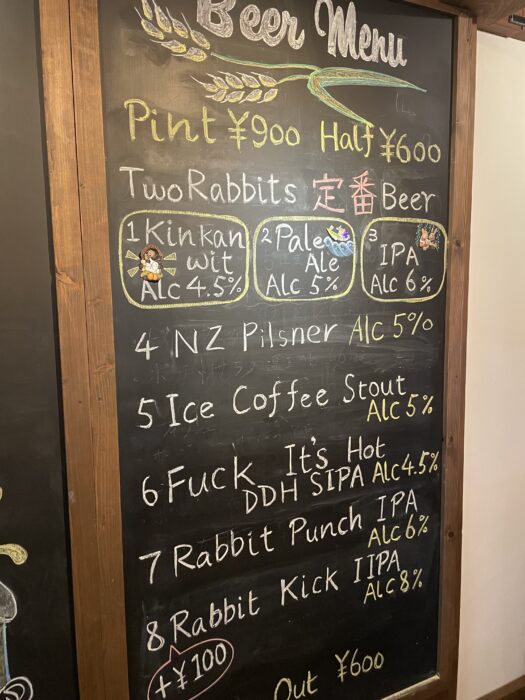 Beer Menu
Pint ¥900 Half ¥600
Two Rabbits 定番 Beer
1 Kinkan
wit
Alc 4.5%
2 Pale
Ale
Alc 5%
3
IPA
Alc 6%
4 NZ Pilsner Alc 5%
5 Ice Coffee Stout
Alc 5%
6 Fuck It's Hot
DDH SIPA Alc 4.5%
7 Rabbit Punch IPA
Alc 6%
8 Rabbit Kick IIPA
Alc 8%
+¥100
Out ¥600